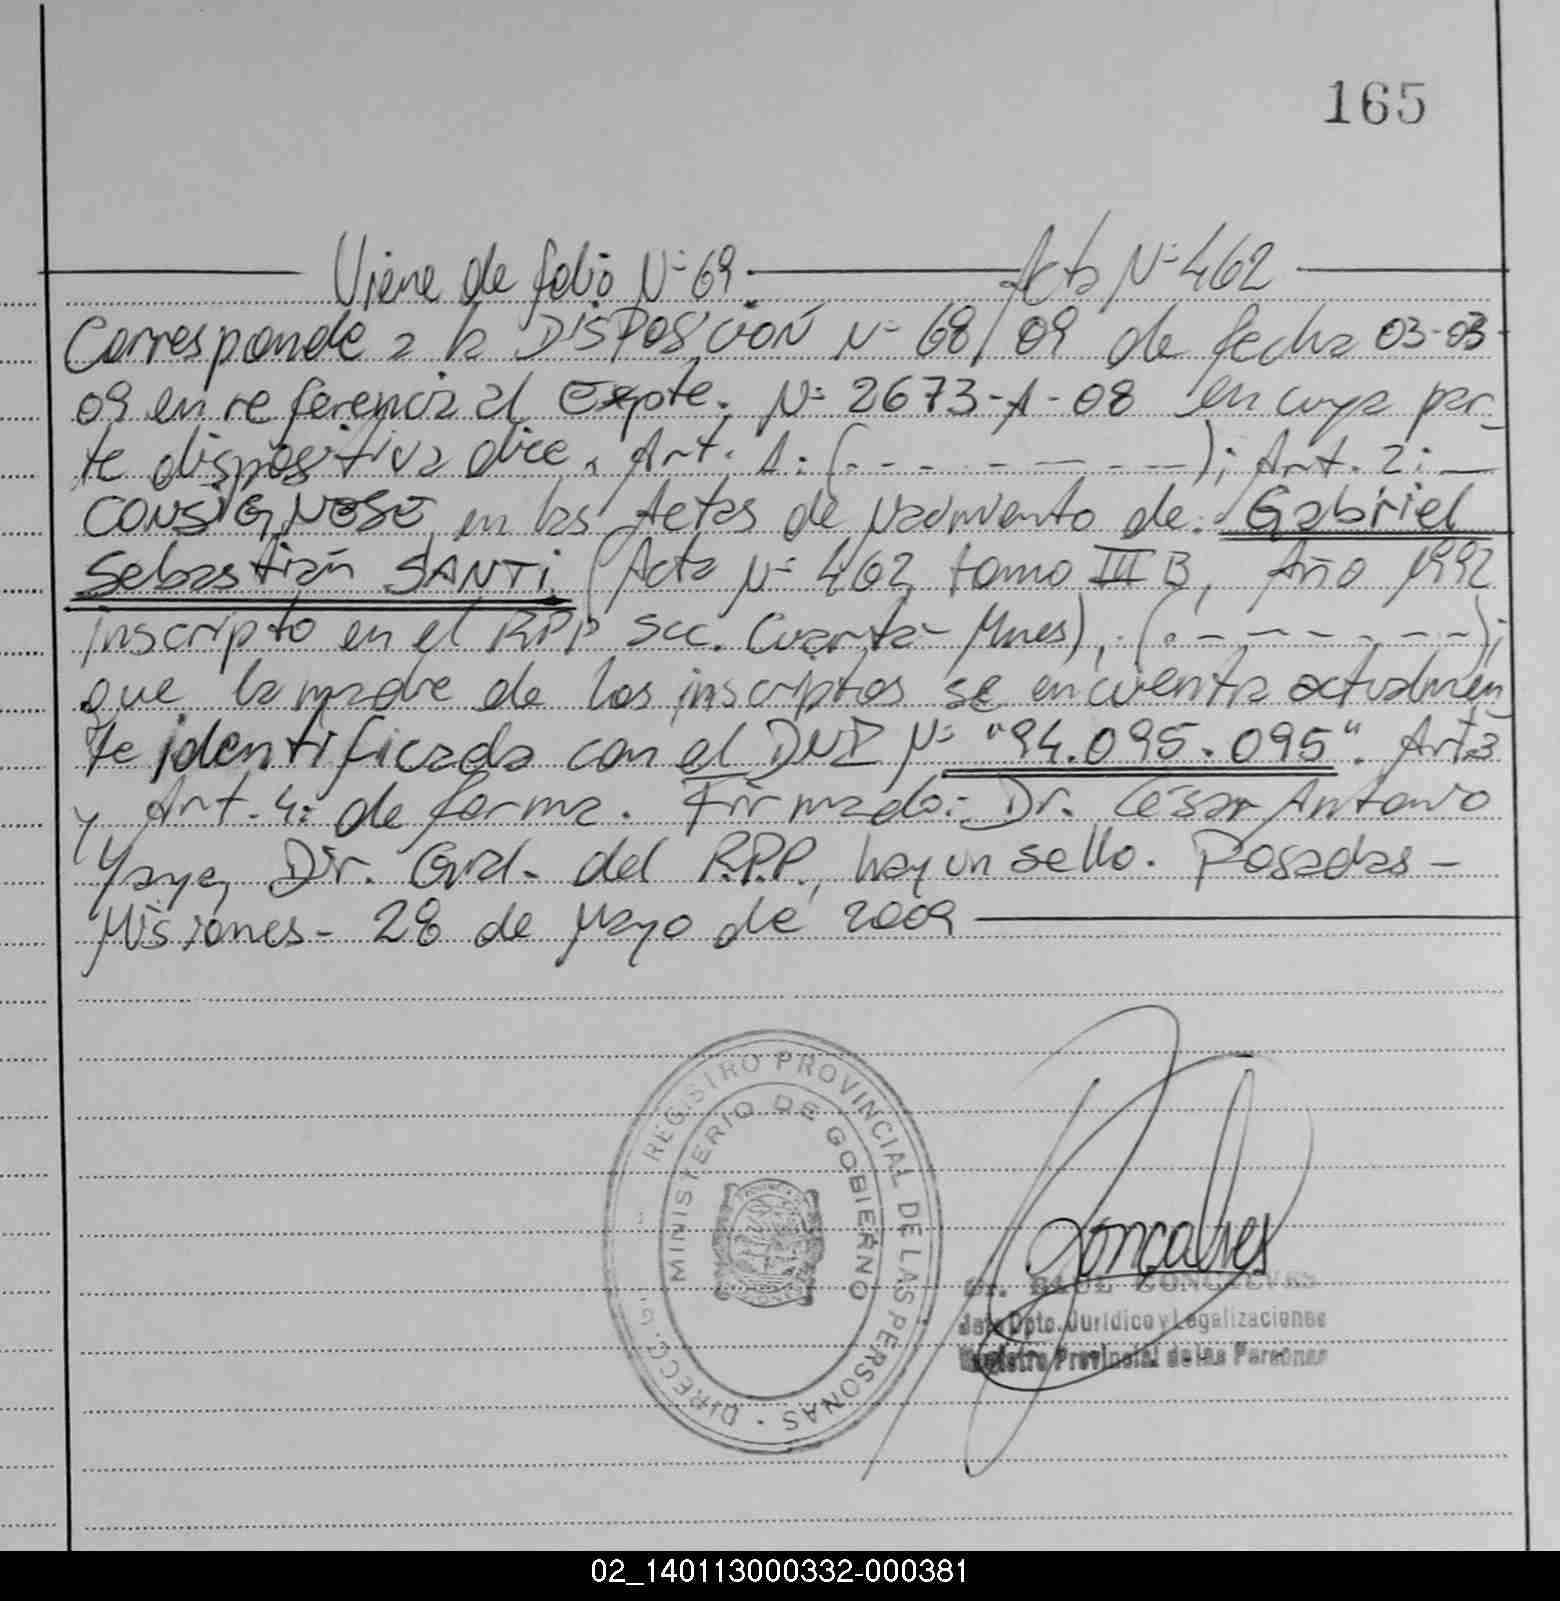 165
Viene de folio Nº 69.- Acta Nº 462
Corresponde a la DISPOSICIÓN Nº 68/09 de fecha 03-03-
09 en referencia al Expte. Nº 2673-A-08 en cuya par_
te dispositiva dice, Art. 1: (.- - - - - - -); Art. 2: —
CONSIGNESE en las Actas de Nacimiento de: Gabriel
Sebastián SANTI. (Acta Nº 462, tomo III B, Año 1992
inscripto en el RPP Scc. Cuarta- Mnes), (.- - - - - - -);
que la madre de los inscriptos se encuentra actualmen
te identificada con el DNI Nº "94.095.095". Art. 3
y Art. 4: de forma. Firmado: Dr. César Antonio
Yaya, Dir. Gral. del R.P.P., hay un sello. Posadas -
Misiones - 28 de Mayo de 2009
REGISTRO PROVINCIAL DE LAS PERSONAS - DIRECC. G
MINISTERIO DE GOBIERNO
Gonçalves
Dr. RAUL GONCALVES
Jefe Dpto. Jurídico y Legalizaciones
Registro Provincial de las Personas
02_140113000332-000381